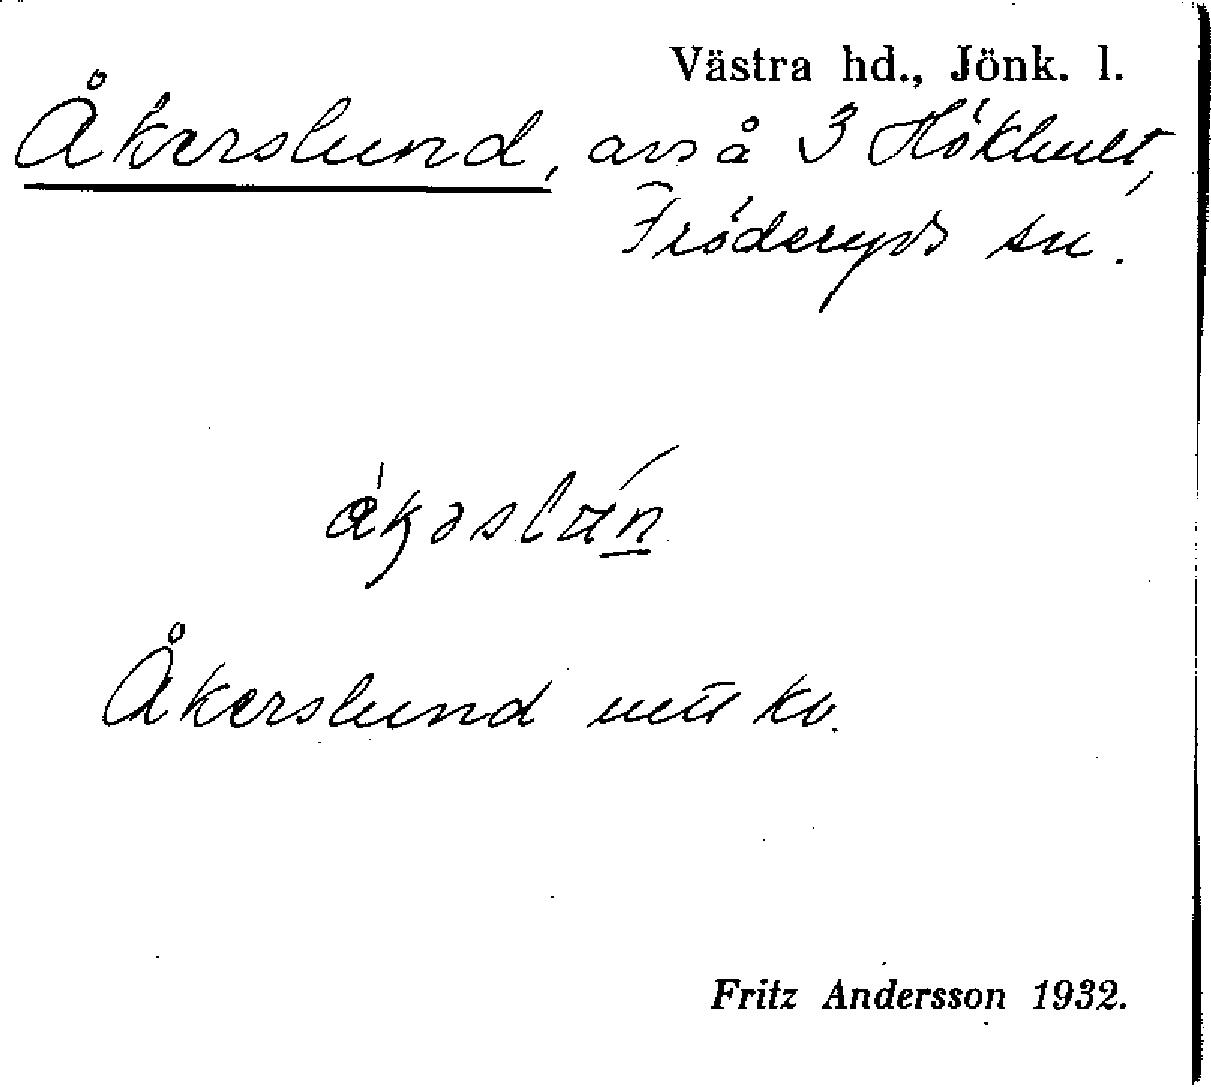 Västra hd., Jönk. l.
Åkerslund, avs å 3 Hökhult,
Fröderyds sn.
Åkerslund utt ko
Fritz Andersson 1932.